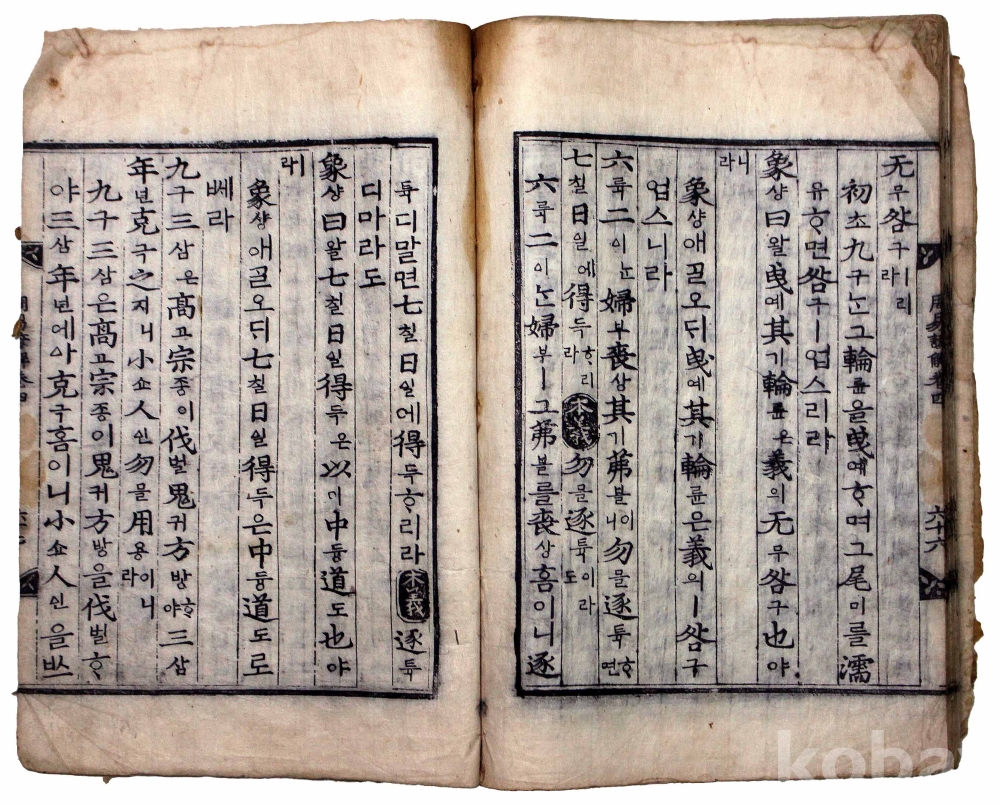 无무咎구ㅣ리라
初초九구ᄂᆞᆫ그輪륜을曳예ᄒᆞ며그尾미를濡
유ᄒᆞ면咎구ㅣ업스리라
象샹曰왈曳예其기輪륜은義의无무咎구也야
니라
象샹애ᄀᆞᆯ오ᄃᆡ曳예其기輪륜은義의ㅣ咎구
업스니라
六륙二이ᄂᆞᆫ婦부喪상其기茀블이니勿믈逐튝ᄒᆞ면
七칠日일에得득ᄒᆞ리라本義勿믈逐튝이라도
六륙二이ᄂᆞᆫ婦부ㅣ그茀블를喪상홈이니逐
튝디말면七칠日일에得득ᄒᆞ리라本義逐튝
디마라도
象샹曰왈七칠日일得득은以이中듕道도也야
ㅣ라
象샹애ᄀᆞᆯ오ᄃᆡ七칠日일得득은中듕道도로
ᄡᅦ라
九구三삼은高고宗종이伐벌鬼귀方방ᄒᆞ야三삼
年년克극之지니小쇼人인勿믈用용이니라
九구三삼은高고宗종이鬼귀方방을伐벌ᄒᆞ
야三삼年년에아克극홈이니小쇼人인을ᄡᅳ
周易諺解卷四
六十六
koba